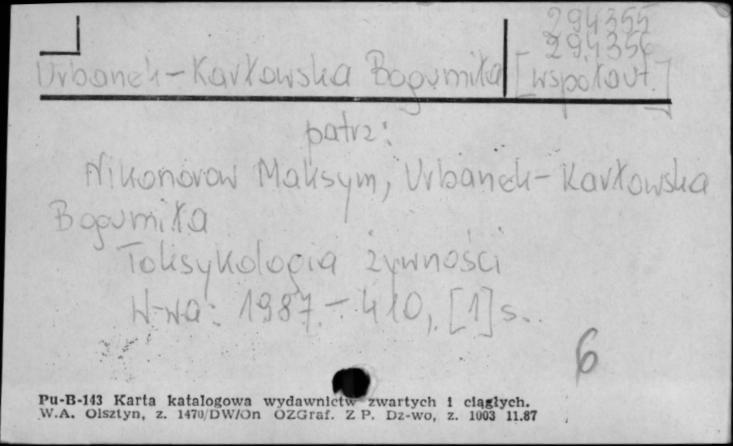 294355
294356
Urbanek-Karłowska Bogumiła [współaut.]
patrz:
Nikonorow Maksym, Urbanek-Karłowska
Bogumiła
Toksykologia żywności
W-wa: 1987.- 410, [1] s.
6
Pu-B-143 Karta katalogowa wydawnictw zwartych i ciągłych.
W.A. Olsztyn, z. 1470/DW/On OZGraf. Z P. Dz-wo, z. 1003 11.87